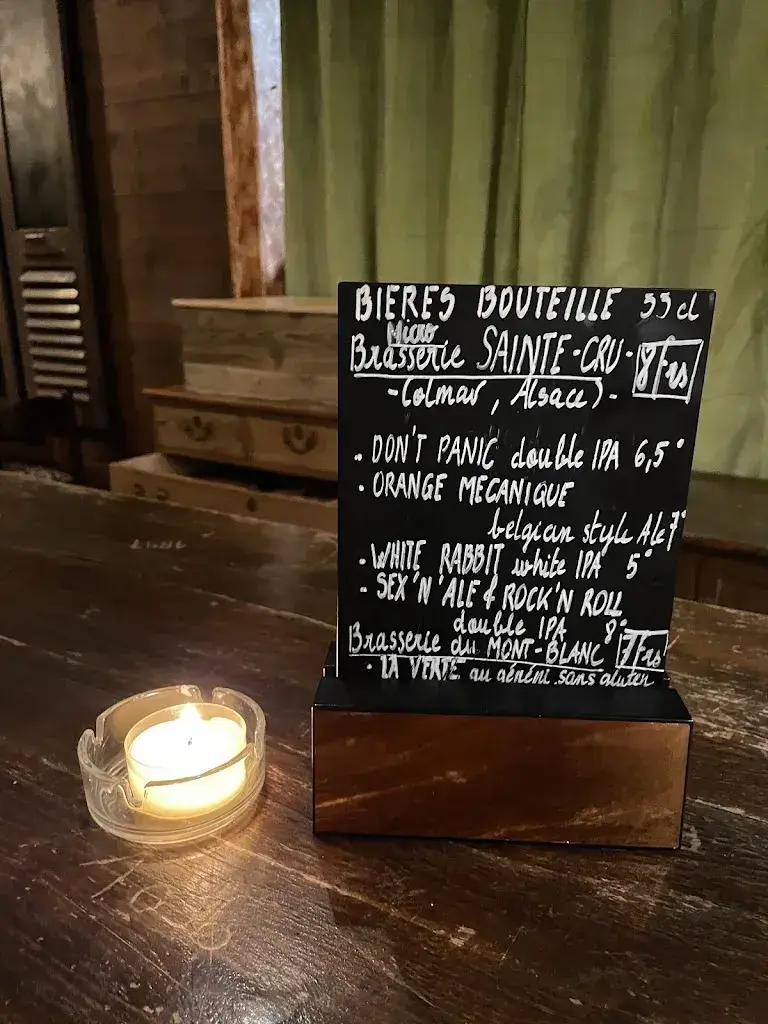 BIERES BOUTEILLE 33 cl
Micro
Brasserie SAINTE-CRU- 8 Frs
-(Colmar, Alsace)-
. DON'T PANIC double IPA 6,5°
. ORANGE MECANIQUE
belgian style Ale 7°
. WHITE RABBIT white IPA 5°
- SEX'N'ALE & ROCK'N ROLL
double IPA 8°
Brasserie du MONT-BLANC 7 Frs
. LA VERTE au génépi sans gluten